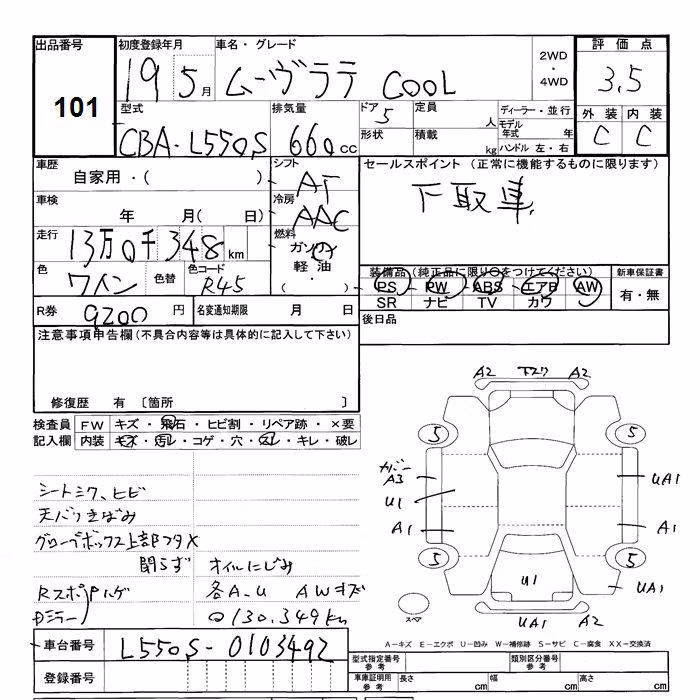 出品番号 初度登録年月 車名・グレード 評価点
101
19 5月 ムーヴラテ COOL 2WD・4WD 3.5
型式 排気量 ドア 5 定員 人 ディーラー・並行 外装 内装
CBA-L550S 660 cc 形状 積載 kg モデル年式 年 ハンドル 左・右 C C
車歴 シフト セールスポイント(正常に機能するものに限ります)
自家用・( ) AT 下取車
車検 冷房
年 月( 日) AAC
走行 燃料
13万0千348km ガソリン
軽油
・( )
色 色替 色コード 装備品(純正品に限り○をつけてください) 新車保証書
ワイン R45 PS PW ABS エアB AW 有・無
SR ナビ TV カワ
R券 9200 円 名変通知期限 月 日 後日品
注意事項申告欄(不具合内容等は具体的に記入して下さい)
修復歴 有 〔箇所 〕
検査員 FW キズ・飛石・ヒビ割・リペア跡・×要
記入欄 内装 キズ・汚レ・コゲ・穴・スレ・キレ・破レ
A2 下スリ A2
5 5
カバー
A3 UA1
U1
A1 A1
5 5
U1 UA1
スペア
UA1 A2
シートシワ、ヒビ
天バリきばみ
グローブボックス上部フタ×
閉らず オイルにじみ
RスポPハゲ 各A.U AWキズ
Dミラー 130.349km
A-キズ E-エクボ U-凹み W-補修跡 S-サビ C-腐食 XX-交換済
車台番号 L550S-0103492
型式指定番号 参考 類別区分番号 参考
登録番号 車庫証明用 参考 長さ cm 幅 cm 高さ cm